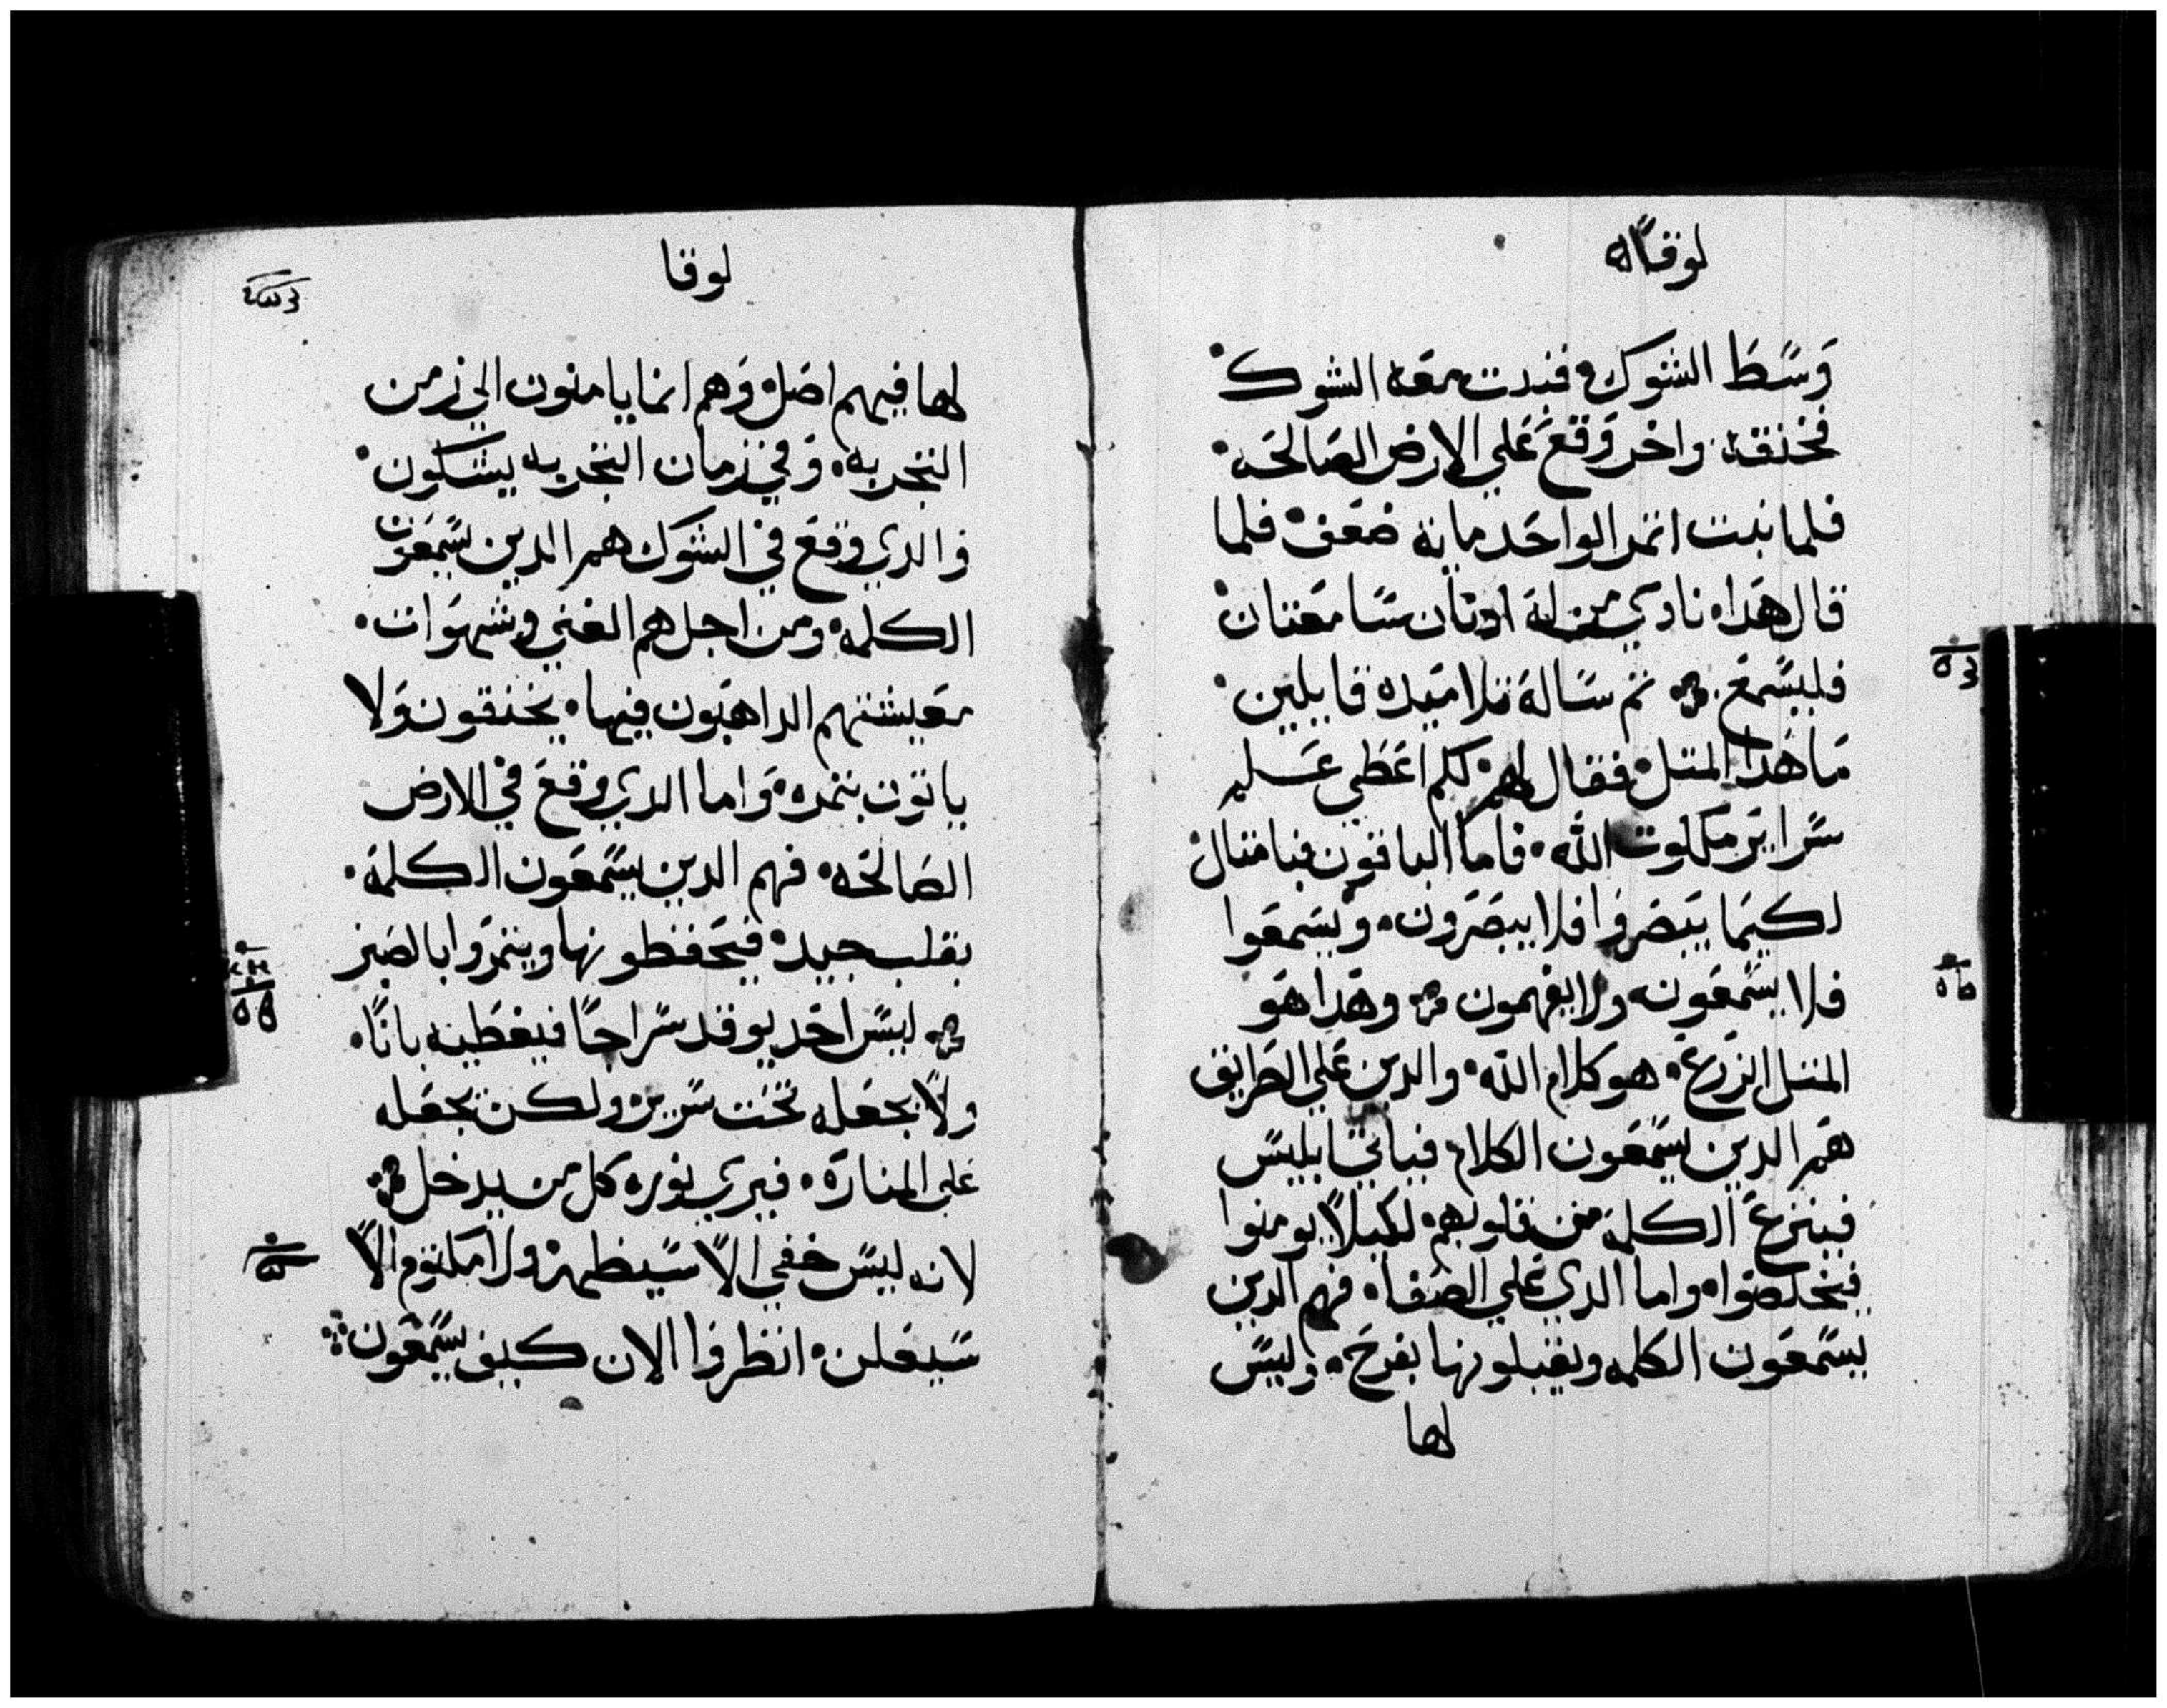 لوقا
وسط الشوك فنبت معه الشوك
فخنقه واخر وقع علي الارض الصالحه
فلما نبت اتمر الواحد ماية ضعف فلما
قال هدا نادي من له ادنان سامعتان
فليسمع ثم ساله تلاميده قايلين
ما هدا المتل فقال لهم لكم اعطي علم
سراير ملكوت الله فاما الباقون فبامتال
لكيما يبصروا فلا يبصرون ويسمعوا
فلا يسمعون ولا يفهمون وهدا هو
المتل الزرع هو كلام الله والدين علي الطرايق
هم الدين يسمعون الكلام فياتي ابليس
فينزع الكلمة من قلوبهم لكيلا يومنوا
فيخلصوا واما الدي علي الصفا فهم الدين
يسمعون الكلمه ويقبلونها بفرح وليس
لها
لوقا
لها فيهم اصل وهم انما يامنون الي زمن
التجربه وفي زمان التجربه يشكون
والدي وقع في الشوك هم الدين يسمعون
الكلمه ومن اجل هم الغني وشهوات
معيشتهم الداهبون فيها يختنقون ولا
ياتون بتمره واما الدي وقع في الارض
الصالحه فهم الدين يسمعون الكلمة
بقلب جيد فيحفظونها ويتمروا بالصبر
ليس احد يوقد سراجا فيغطيه باناء
ولا يجعله تحت سرير ولكن يجعله
علي المنارة فيري نوره كل من يدخل
لانه ليس خفي الا سيظهر ولا مكتوم الا
سيعلن انظروا الان كيف يسمعون